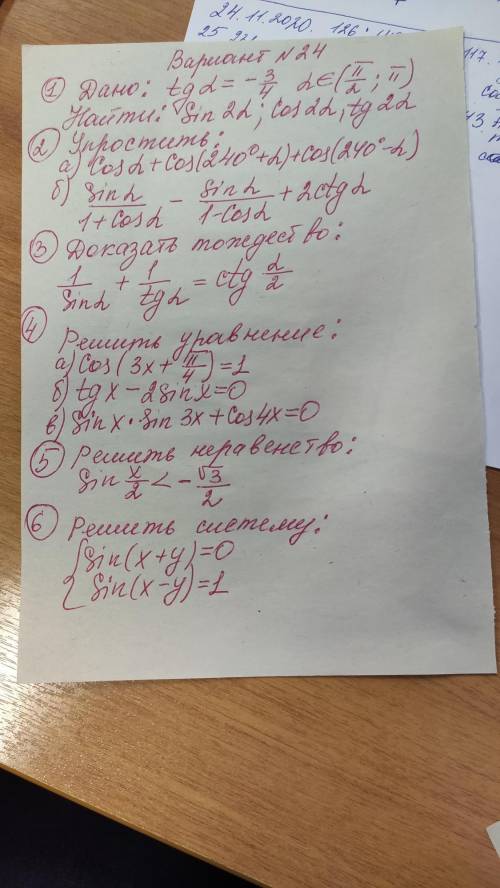 24.11.2020.
Вариант N 24
① Дано: tg α = -3/4 α ∈ (π/2; π)
Найти: Sin 2α; cos 2α; tg 2α
② Упростить:
а) Cos α + Cos(240° + α) + cos(240° - α)
б) Sin α/(1 + cos α) - Sin α/(1 - cos α) + 2ctg α
③ Доказать тождество:
1/Sin α + 1/tg α = ctg α/2
④ Решить уравнение:
а) Cos(3x + π/4) = 1
б) tg x - 2 Sin x = 0
в) Sin x · Sin 3x + Cos 4x = 0
⑤ Решить неравенство:
Sin x/2 < - √3/2
⑥ Решить систему:
{ Sin(x + y) = 0
Sin(x - y) = 1